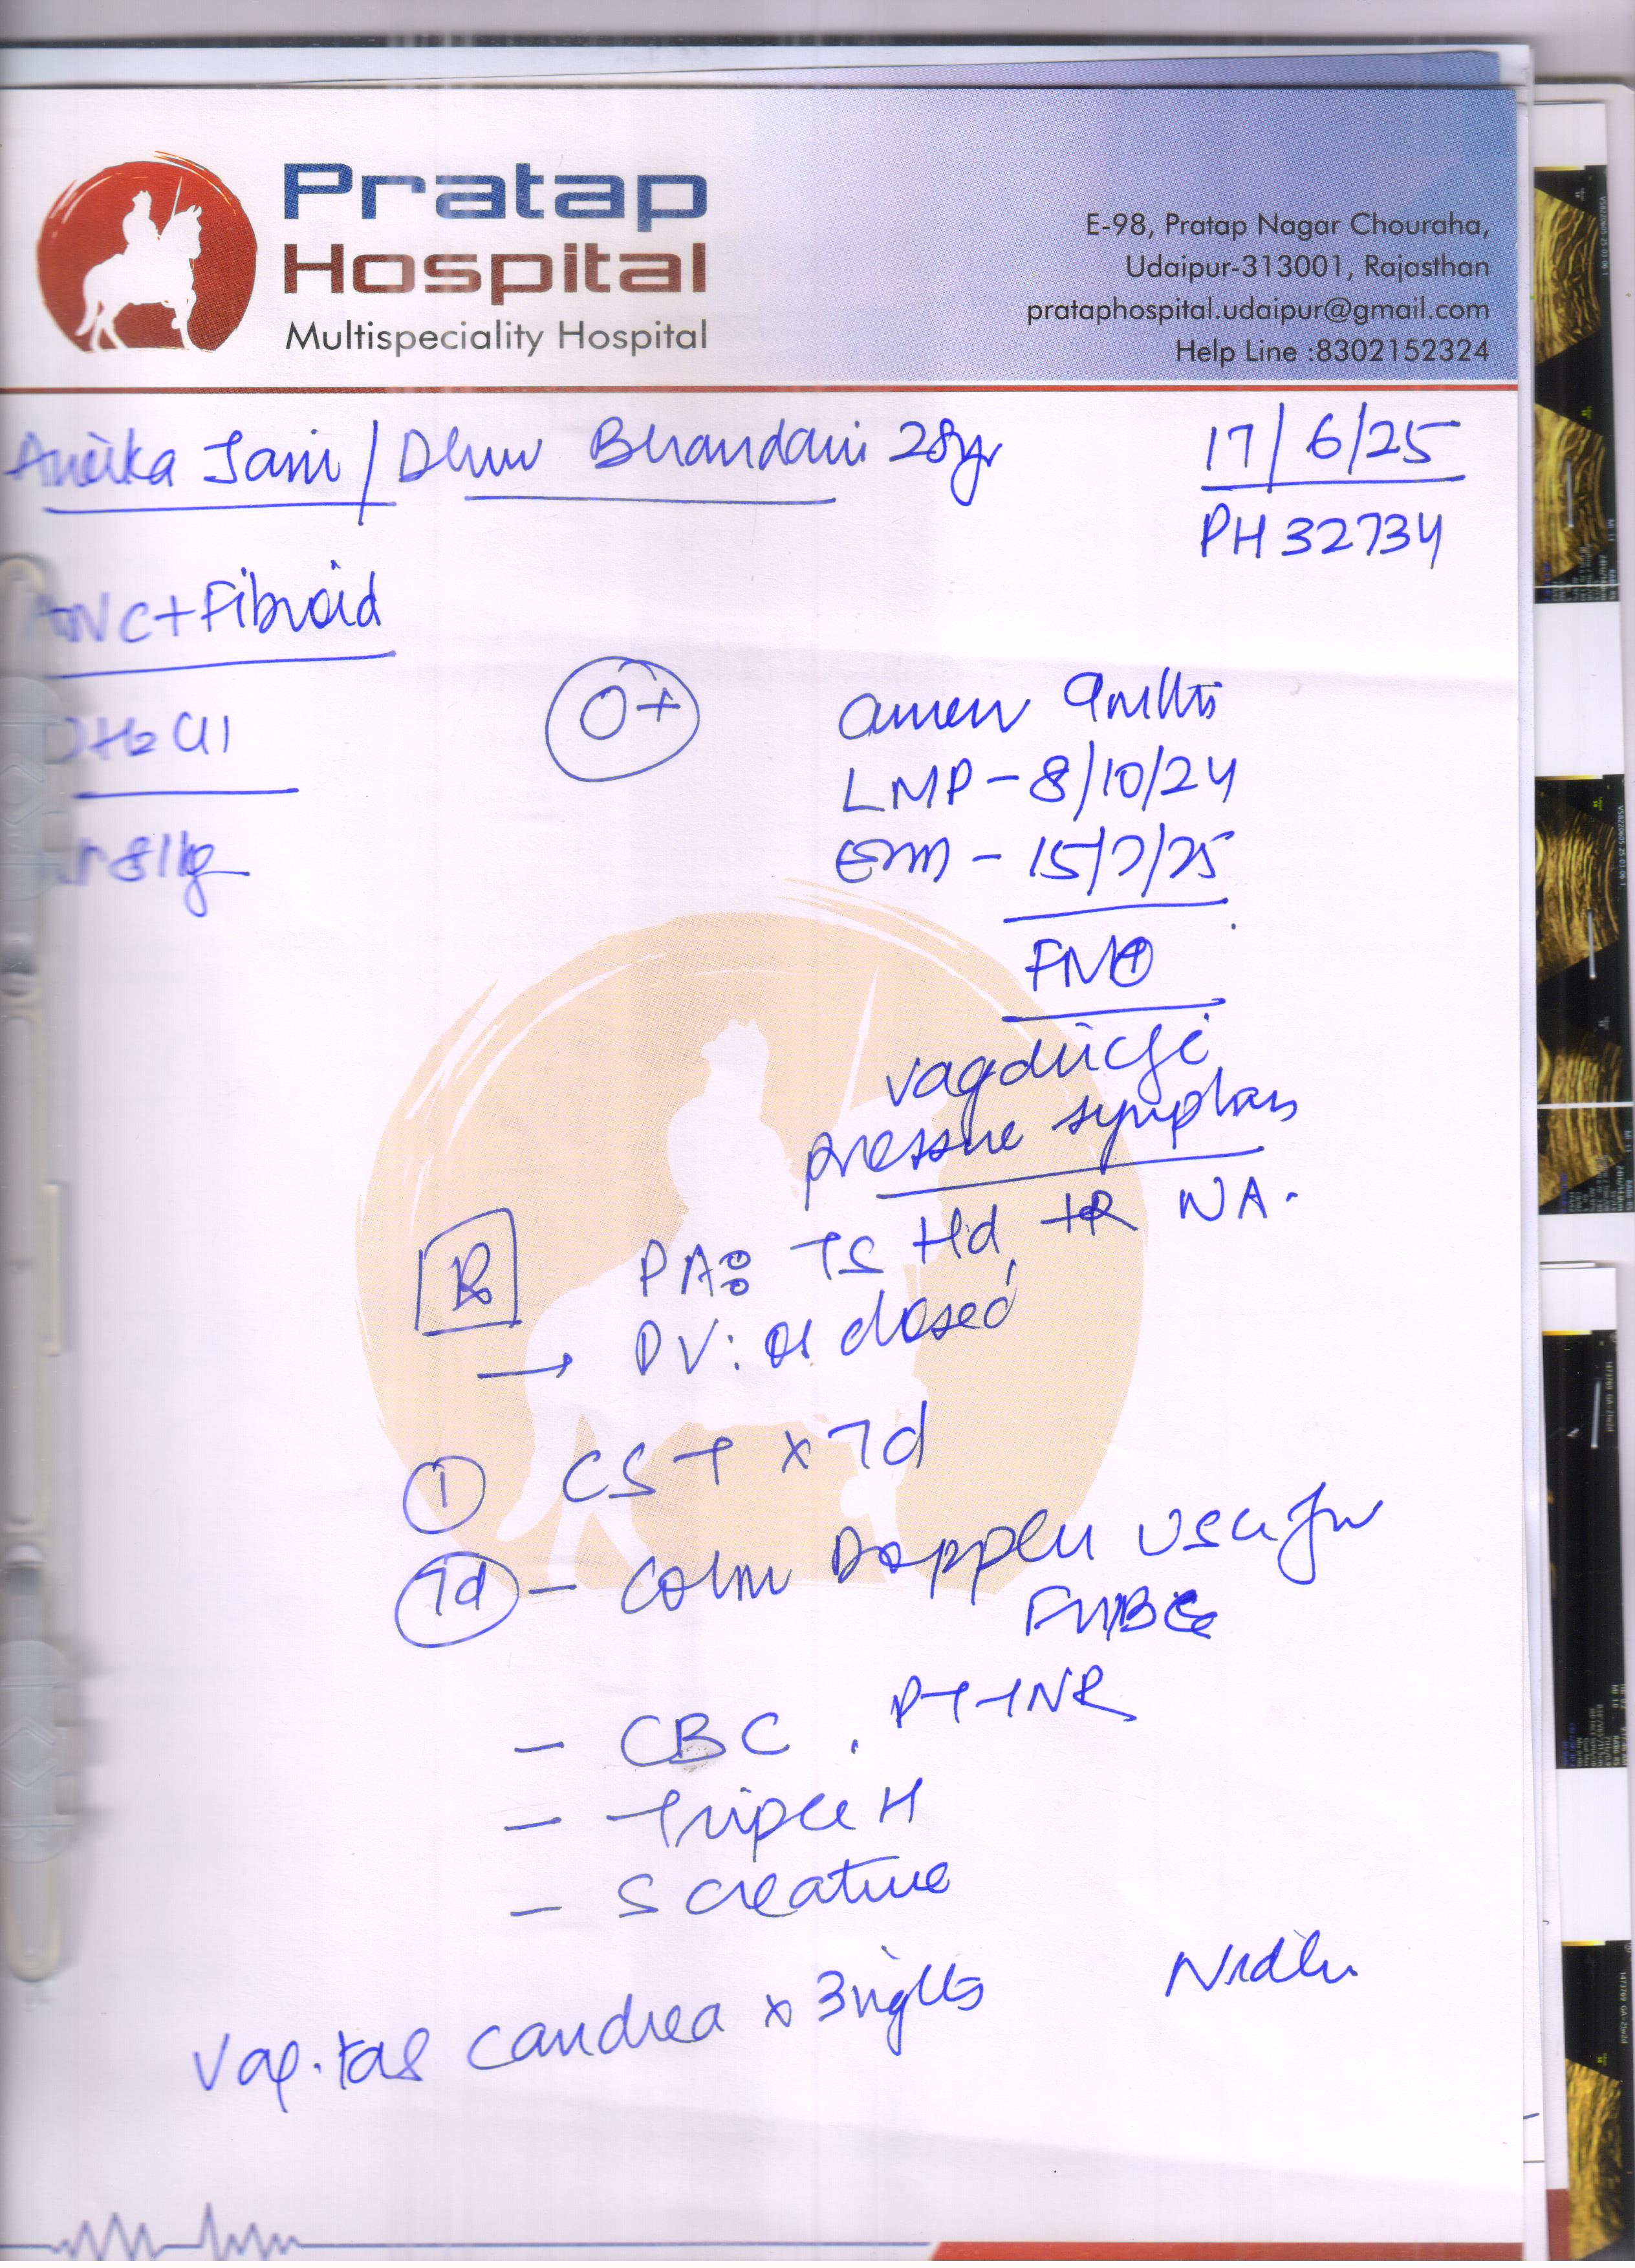 Pratap
Hospital
Multispeciality Hospital
E-98, Pratap Nagar Chouraha,
Udaipur-313001, Rajasthan
prataphospital.udaipur@gmail.com
Help Line :8302152324
Jain / Bhandari 28yr
17/6/25
PH 32734
ANC+Fibroid
O+
Amen 9mths
LMP - 8/10/24
15/7/25
FM⊕
vag
pressure symptoms
PA: TS Hd, HR NA.
PV: os closed
Rx
→
① CST x 7d
7d - Colour Doppler USG for
- CBC, PT INR
- Triple H
- S creatine
Vag. tab candrea x 3 nights
Nidhi